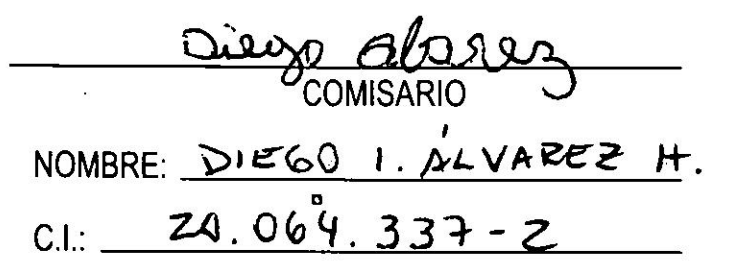 Diego Alvarez
COMISARIO
NOMBRE: DIEGO I. ÁLVAREZ H.
C.I.: 20.064.337-2